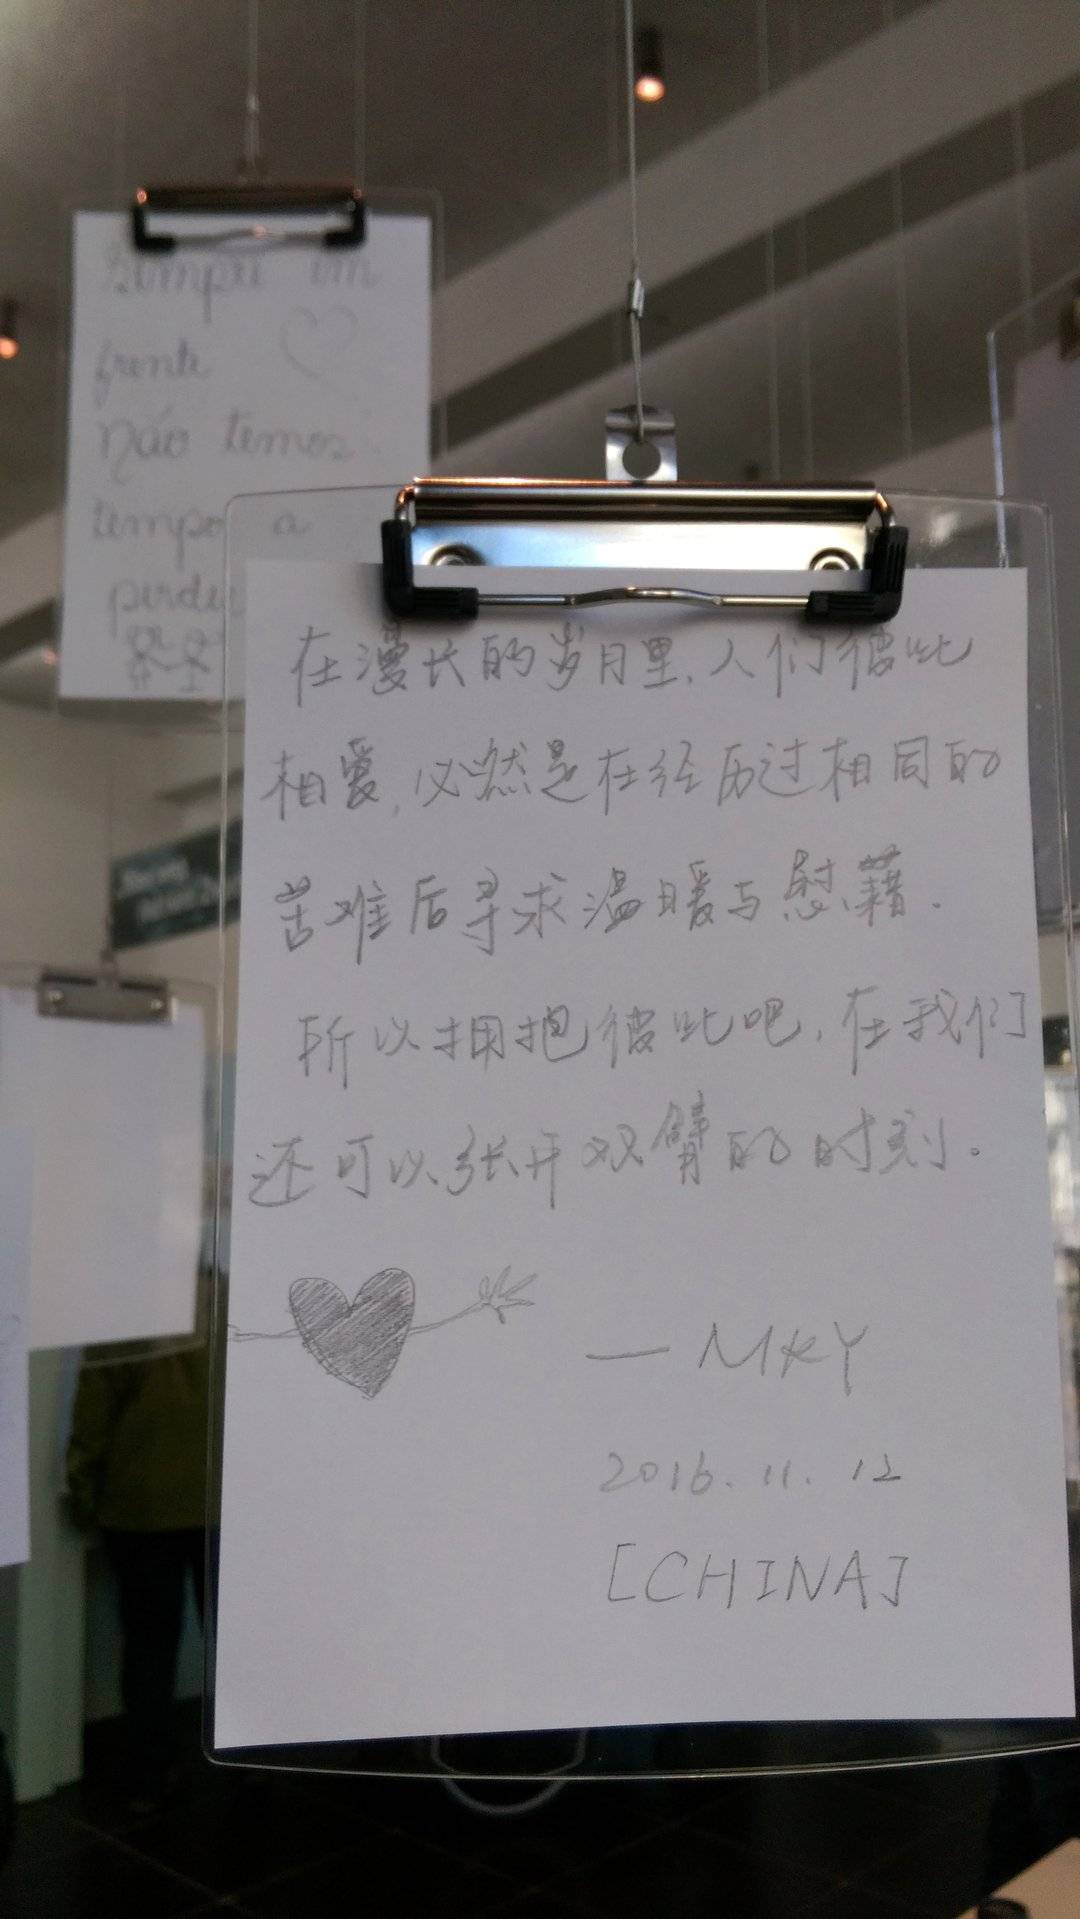 frente
não temos
tempo a
在漫长的岁月里，人们彼此
相爱，必然是在经历过相同的
苦难后寻求温暖与慰藉．
所以拥抱彼此吧，在我们
还可以张开双臂的时刻。
— MKY
2016.11.12
[CHINA]